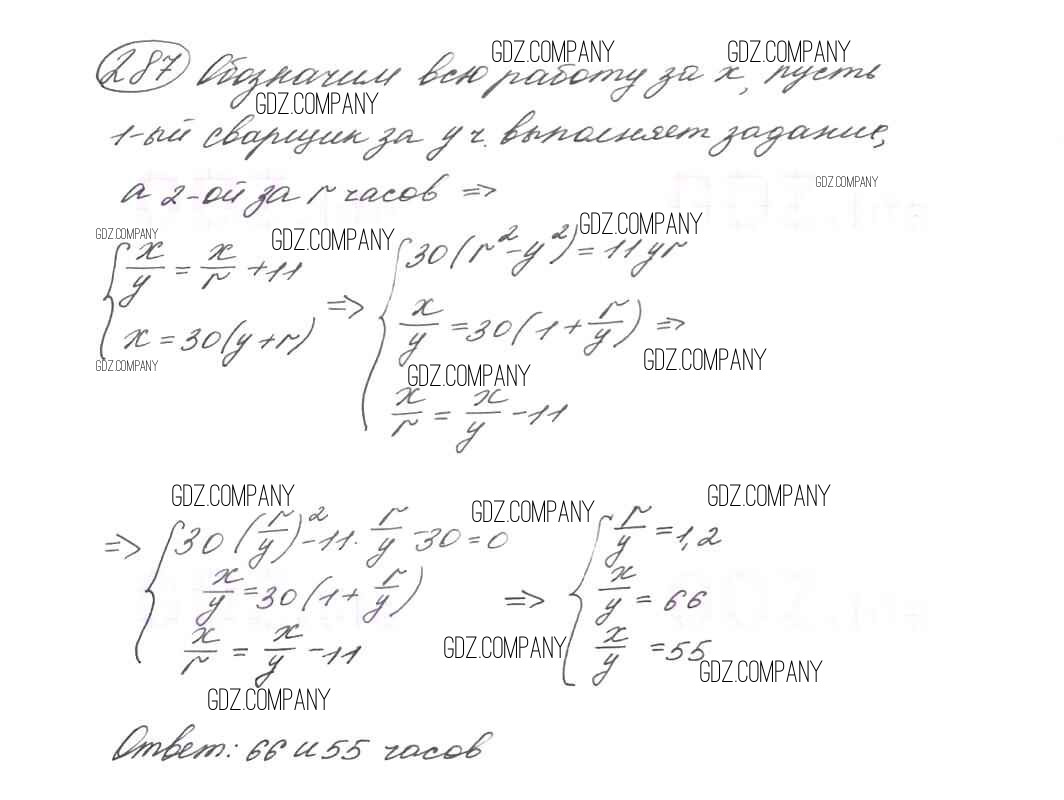 287 Обозначим всю работу за x, пусть
GDZ.COMPANY GDZ.COMPANY
GDZ.COMPANY
1-ый сварщик за y ч. выполняет задание,
а 2-ой за r часов =>
GDZ.COMPANY
GDZ.COMPANY GDZ.COMPANY GDZ.COMPANY
{ x/y = x/r + 11
x = 30(y+r)
=> { 30(r² - y²) = 11yr
x/y = 30(1 + r/y) =>
x/r = x/y - 11
GDZ.COMPANY GDZ.COMPANY GDZ.COMPANY
GDZ.COMPANY GDZ.COMPANY GDZ.COMPANY
=> { 30(r/y)² - 11 · r/y - 30 = 0
x/y = 30(1 + r/y)
x/r = x/y - 11
=> { r/y = 1,2
x/y = 66
x/y = 55
GDZ.COMPANY GDZ.COMPANY
GDZ.COMPANY
Ответ: 66 и 55 часов